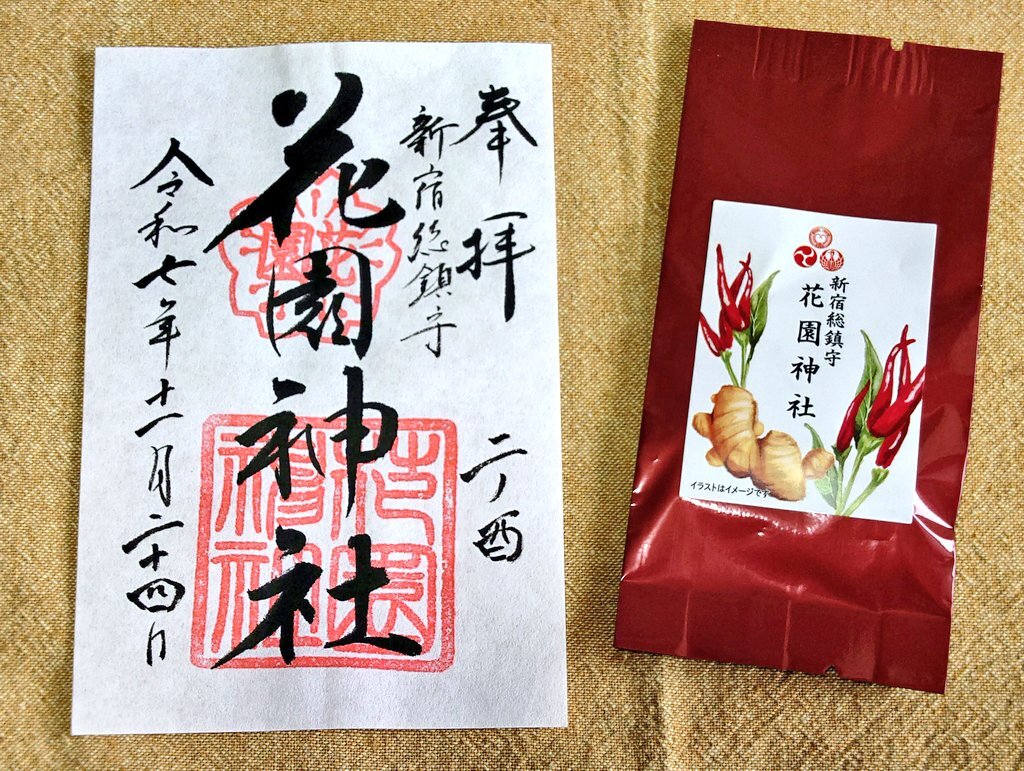 奉拝
二ノ酉
新宿総鎮守
花園神社
令和七年十一月二十四日
花園
花園神社
新宿総鎮守
花園神社
イラストはイメージです